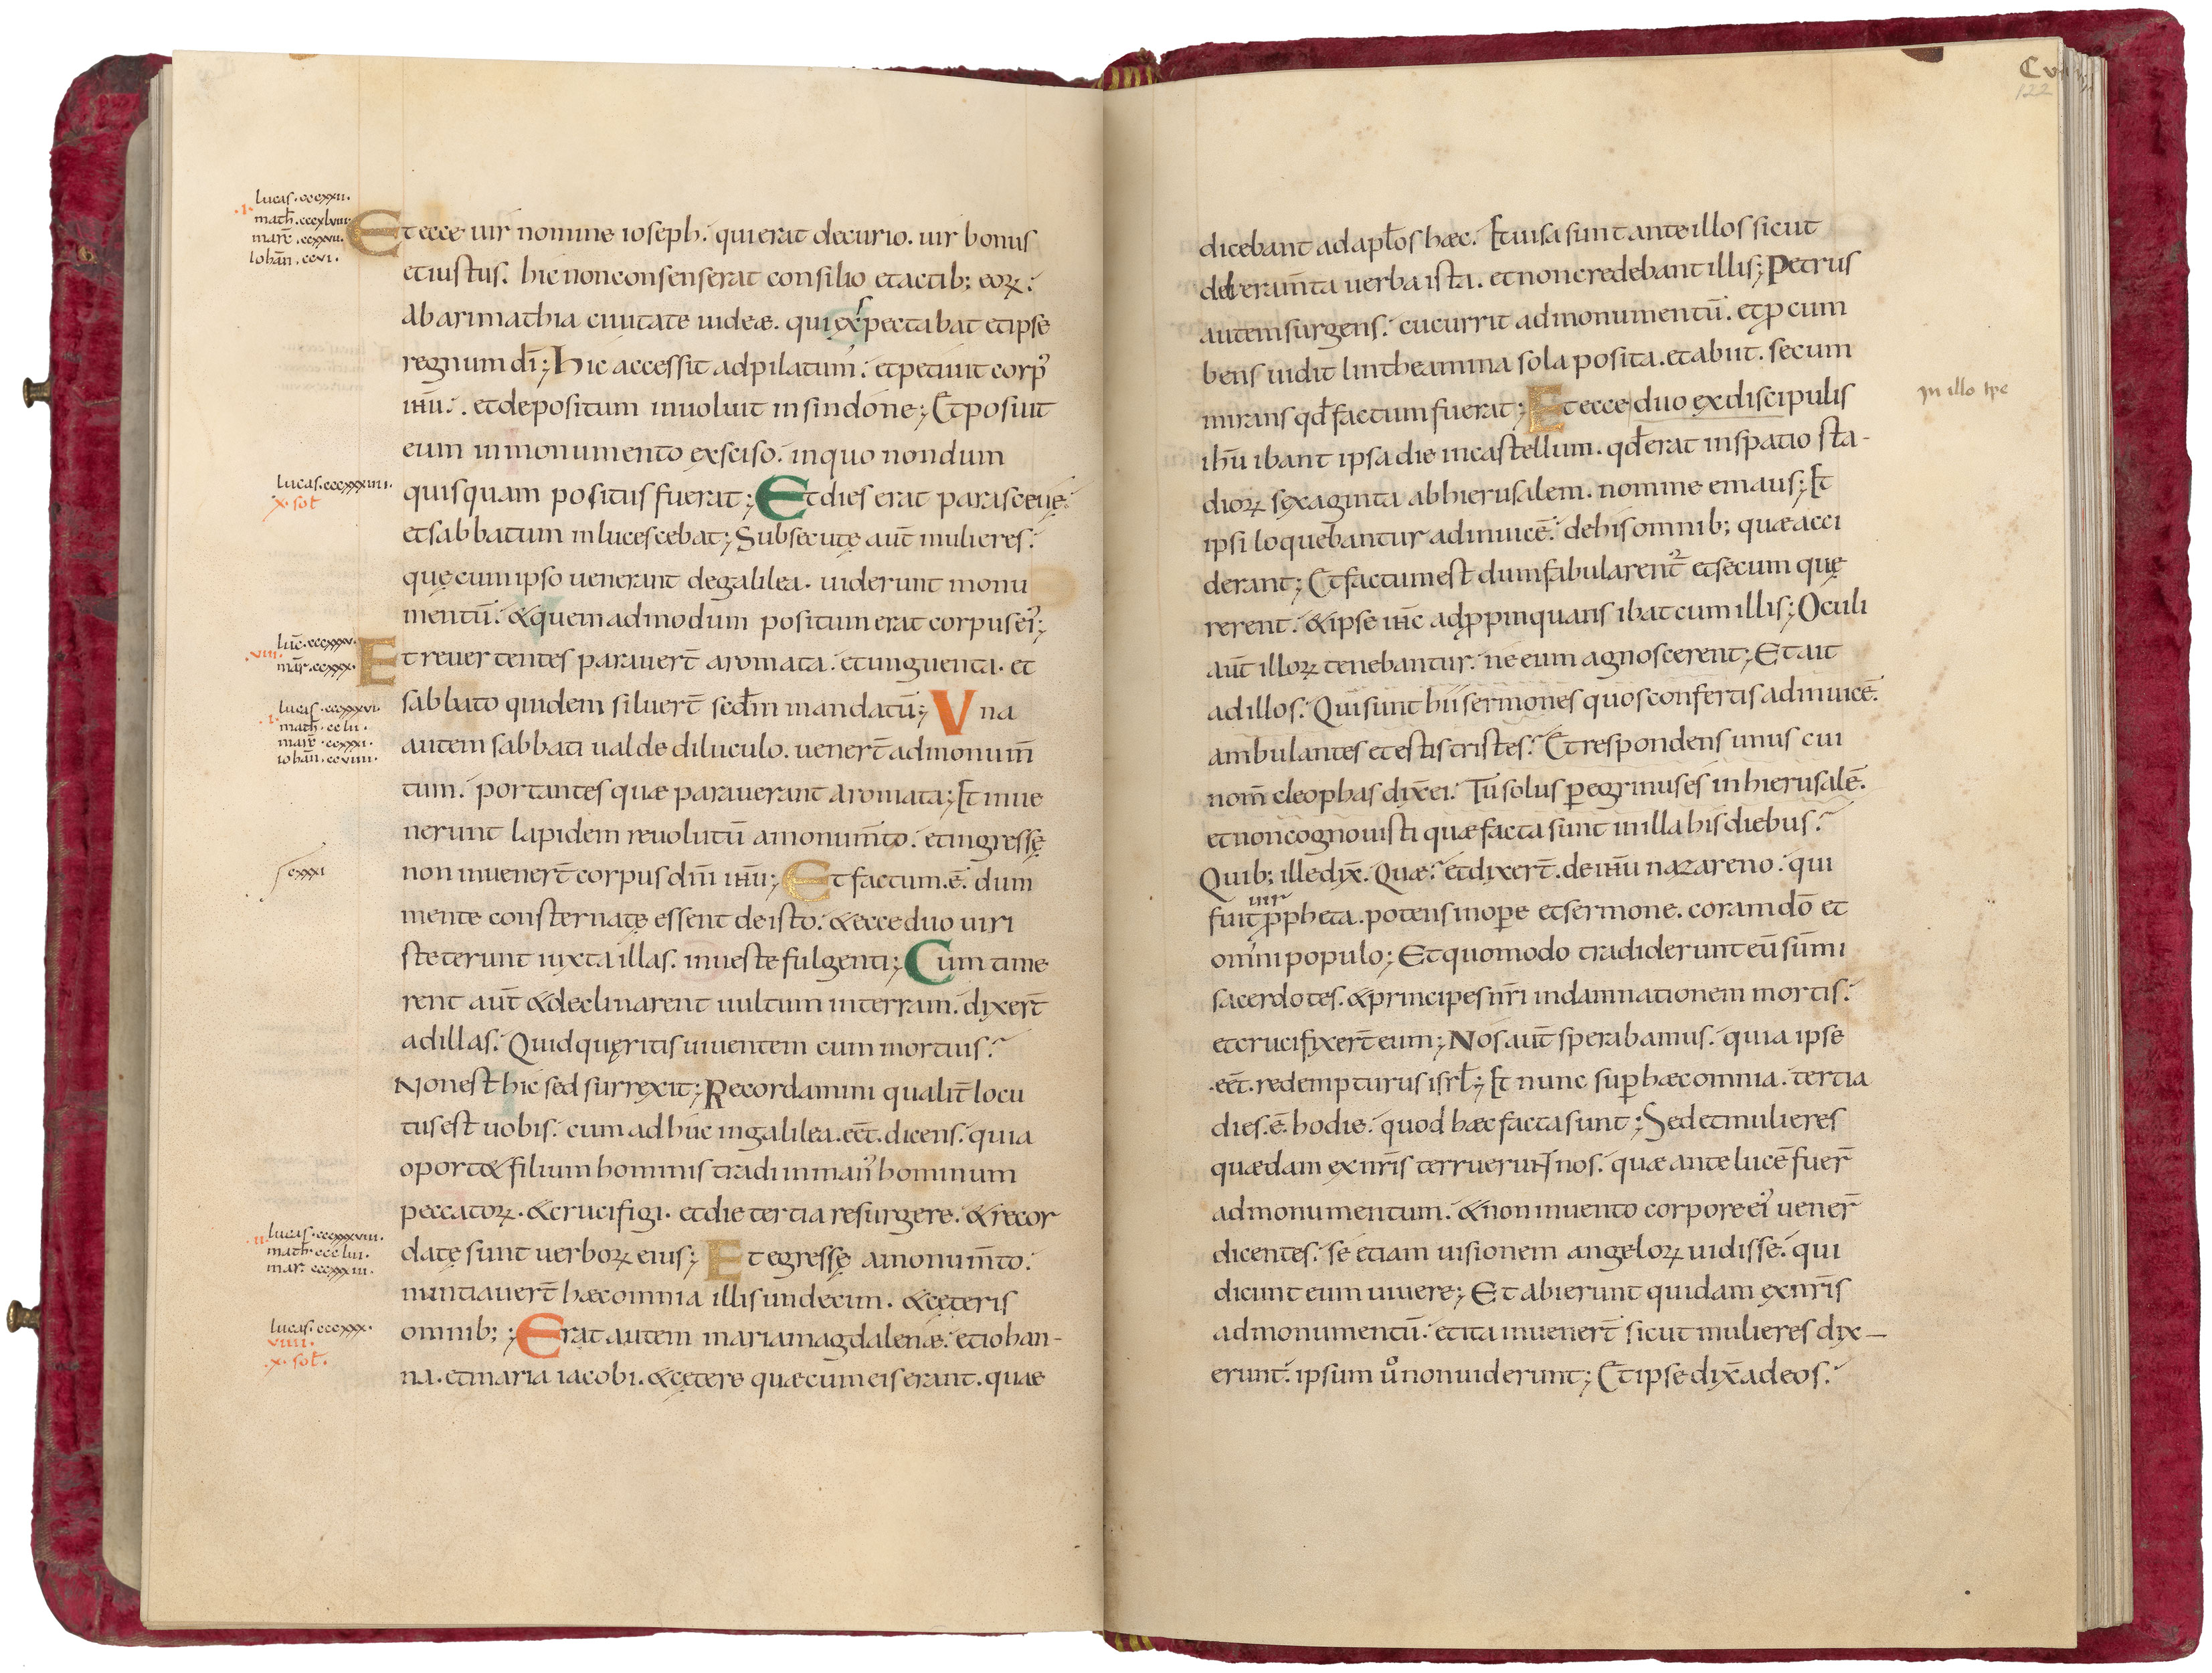 lucas.cccxxii.
.i.
math̄.cccxlviii.
marc̄.ccxxvii.
Iohan̄.ccvi.
Et ecce uir nomine ioseph. qui erat decurio. uir bonus
et iustus. hic non consenserat consilio et actib; eoꝝ.
Ab arimathia ciuitate iudeæ. qui exspectabat et ipse
regnum dī; Hic accessit ad pilatum. et petiuit corpꝰ
ihū. et depositum inuoluit in sindone; Et posuit
eum in monumento exsciso. in quo nondum
lucas.cccxxxiiii.
x. sol̄
quisquam positus fuerat; Et dies erat parasceuę.
et sabbatum inlucescebat; Subsecutę aut̄ mulieres.
quę cum ipso uenerant de galilea. uiderunt monu
mentū. & quemadmodum positum erat corpus eiꝰ;
luc̄.cccxxxv.
.viii.
mar̄.ccxxx.
Et reuertentes parauer̄t aromata. et unguenta. et
lucas.cccxxxvi.
.i.
math̄.cclii.
marc̄.ccxxxi.
iohan̄.ccviiii.
sabbato quidem siluer̄t sed̄m mandatū; Vna
autem sabbati ualde diluculo. uener̄t ad monum̄
tum. portantes quæ parauerant aromata; Et inue
nerunt lapidem reuolutū a monum̄to. et ingressę
cxxxi
non inuener̄t corpus dn̄i ihū; Et factum.ē. dum
mente consternatę essent de isto. & ecce duo uiri
steterunt iuxta illas. in ueste fulgenti; Cum time
rent aut̄ & declinarent uultum in terram. dixer̄t
ad illas. Quid quęritis uiuentem cum mortuis.
Non est hic sed surrexit; Recordamini qualit̄ locu
tus est uobis. cum adhuc in galilea.eēt. dicens. quia
oport& filium hominis tradi in manꝰ hominum
peccatoꝝ. & crucifigi. et die tertia resurgere. & recor
lucas.cccxxxviii.
.ii.
math̄.cccliii.
mar̄ cccxxxiii.
datę sunt uerboꝝ eius; Et egressę a monum̄to.
nuntiauer̄t hæc omnia illis undecim. & cęteris
lucas.cccxxx.
viiii.
.x. sol̄.
omnib;; Erat autem maria magdalenæ. et iohan-
na. et maria iacobi. & cętere quæ cum eis erant. quae
Cv
122
dicebant ad apl̄os hæc. Et uisa sunt ante illos sicut
deleram̄ta uerba ista. et non credebant illis; Petrus
autem surgens. cucurrit ad monumentū. et ꝓcum
bens uidit lintheamina sola posita. et abiit. secum
mirans qd̄ factum fuerat; Et ecce duo ex discipulis
In illo tp̄e
ihū ibant ipsa die in castellum. qd̄ erat in spatio sta-
dioꝝ sexaginta ab hierusalem. nomine emaus; Et
ipsi loquebantur adinuicē. de his omnib; quæ acci
derant; Et factum est dum fabularent᷑ et secum quę
rerent. & ipse ihc̄ adꝓpinquans ibat cum illis; Oculi
aut̄ illoꝝ tenebantur. ne eum agnoscerent; Et ait
ad illos. Qui sunt hii sermones quos confertis adinuicē.
ambulantes et estis tristes. Et respondens unus cui
nom̄ cleophas dix̄ ei. Tu solus ꝑegrinus es in hierusalē.
et non cognouisti quæ facta sunt in illa his diebus.
Quib; ille dix̄. Quæ. et dixer̄t. de ihū nazareno. qui
uir
fuit ꝓpheta. potens in oꝑe et sermone. coram dō et
omi̅ populo; Et quomodo tradiderunt eū sūmi
sacerdotes. & principes nr̄i in damnationem mortis.
et crucifixer̄t eum; Nos aut̄ sperabamus. quia ipse
.eēt. redempturus isrl̄; Et nunc suꝑ hæc omnia. tertia
dies.ē. hodie. quod hæc facta sunt; Sed et mulieres
quædam ex nr̄is terruerunt nos. quæ ante lucē fuer̄
ad monumentum. & non inuento corpore eiꝰ uener̄
dicentes. se etiam uisionem angeloꝝ uidisse. qui
dicunt eum uiuere; Et abierunt quidam ex nr̄is
ad monumentū. et ita inuener̄t sicut mulieres dix-
erunt. ipsum u̅o non uiderunt; Et ipse dix̄ ad eos.